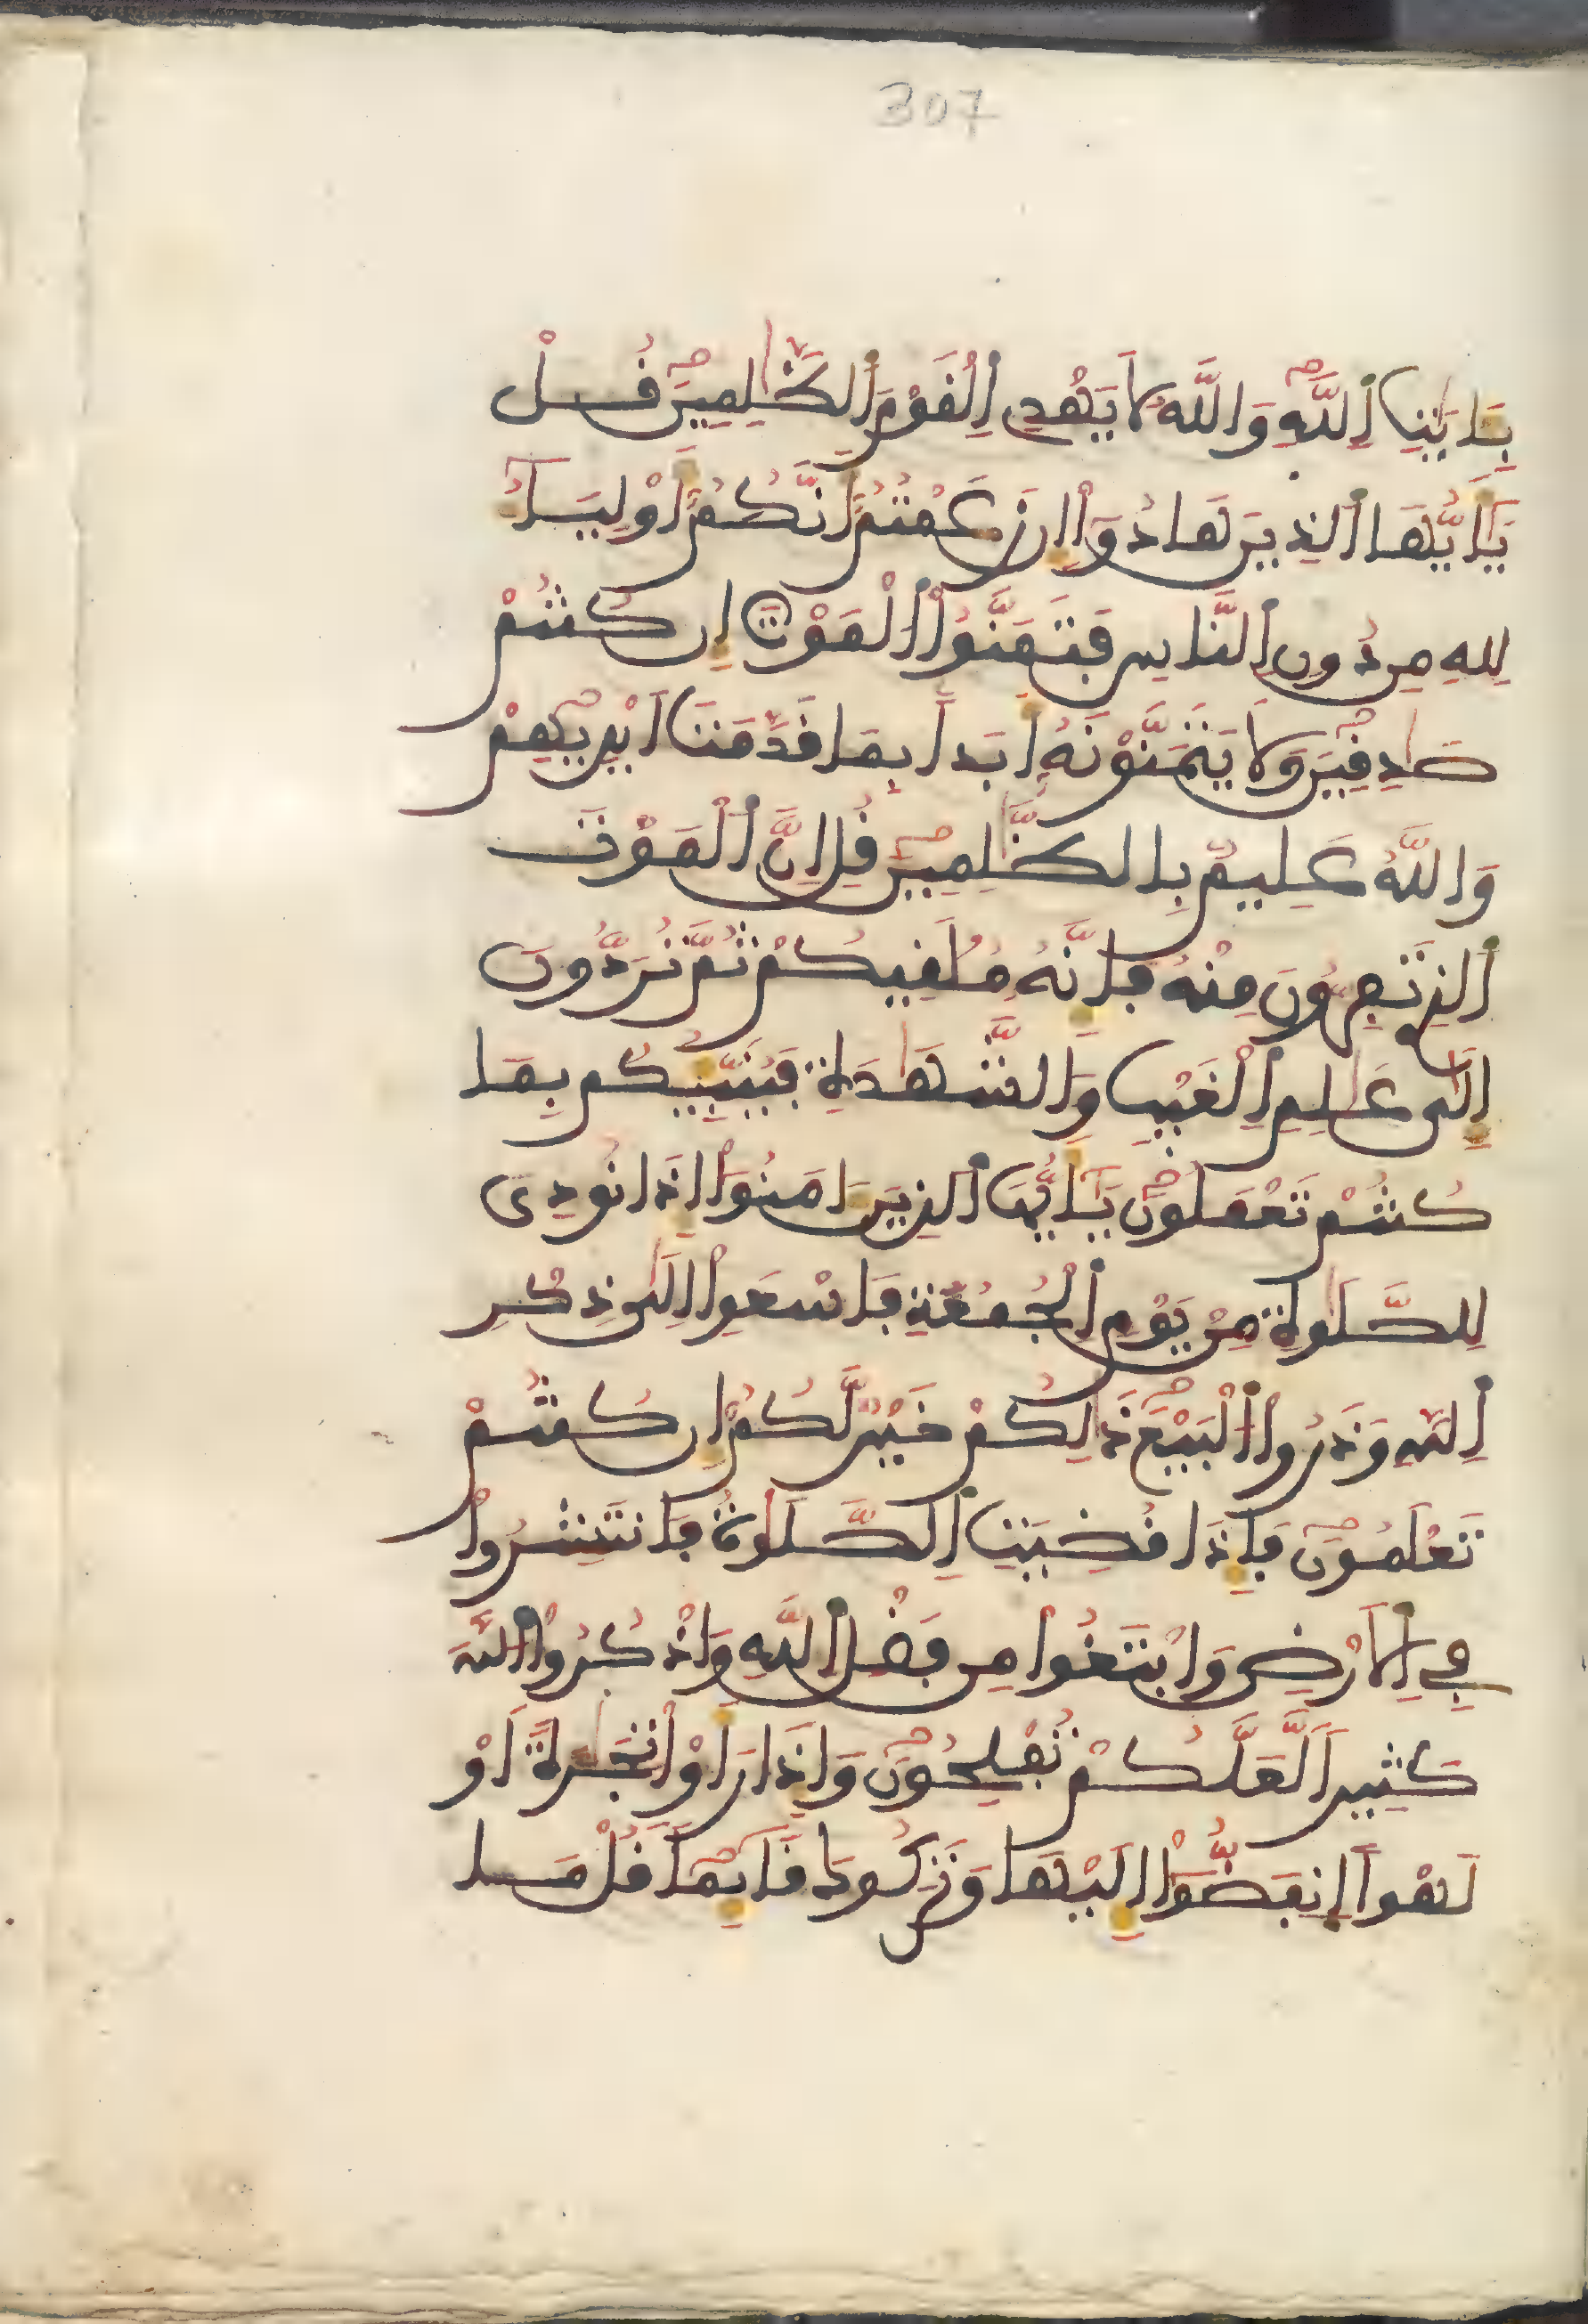 307
بِـَٔايَٰتِ اِ۬للَّهِ وَاللَّهُ لَا يَهْدِے اِ۬لْقَوْمَ اَ۬لظَّٰلِمِينَ قُلْ
يَٰٓأَيُّهَا اَ۬لذِينَ هَادُوٓاْ إِن زَعَمْتُمُۥٓ أَنَّكُمُۥٓ أَوْلِيَآءُ
لِلهِ مِن دُونِ اِ۬لنَّاسِ فَتَمَنَّوُاْ اُ۬لْمَوْتَ إِن كُنتُمْ
صَٰدِقِينَ وَلَا يَتَمَنَّوْنَهُۥٓ أَبَداَۢ بِمَا قَدَّمَتَ اَيْدِيهِمْ
وَاللَّهُ عَلِيمُۢ بِالظَّٰلِمِينَ قُلِ اِنَّ اَ۬لْمَوْتَ
اَ۬لذِے تَفِرُّونَ مِنْهُ فَإِنَّهُۥ مُلَٰقِيكُمْ ثُمَّ تُرَدُّونَ
إِلَىٰ عَٰلِمِ اِ۬لْغَيْبِ وَالشَّهَٰدَةِ فَيُنَبِّئُكُم بِمَا
كُنتُمْ تَعْمَلُونَ يَٰٓأَيُّهَا اَ۬لذِينَ ءَامَنُوٓاْ إِذَا نُودِيَ
لِلصَّلَوٰةِ مِنْ يَوْمِ اِ۬لْجُمُعَةِ فَاسْعَوِاْ اِلَىٰ ذِكْرِ
اِ۬للَّهِ وَذَرُواْ اُ۬لْبَيْعَ ذَٰلِكُمْ خَيْرٌ لَّكُمُۥٓ إِن كُنتُمْ
تَعْلَمُونَ فَإِذَا قُضِيَتِ اِ۬لصَّلَوٰةُ فَانتَشِرُواْ
فِے اِ۬لَارْضِ وَابْتَغُواْ مِن فَضْلِ اِ۬للَّهِ وَاذْكُرُواْ اُ۬للَّهَ
كَثِيراً لَّعَلَّكُمْ تُفْلِحُونَ وَإِذَا رَأَوْاْ تِجَٰرَةً اَوْ
لَهْواً اِنفَضُّوٓاْ إِلَيْهَا وَتَرَكُوكَ قَآئِماً قُلْ مَا